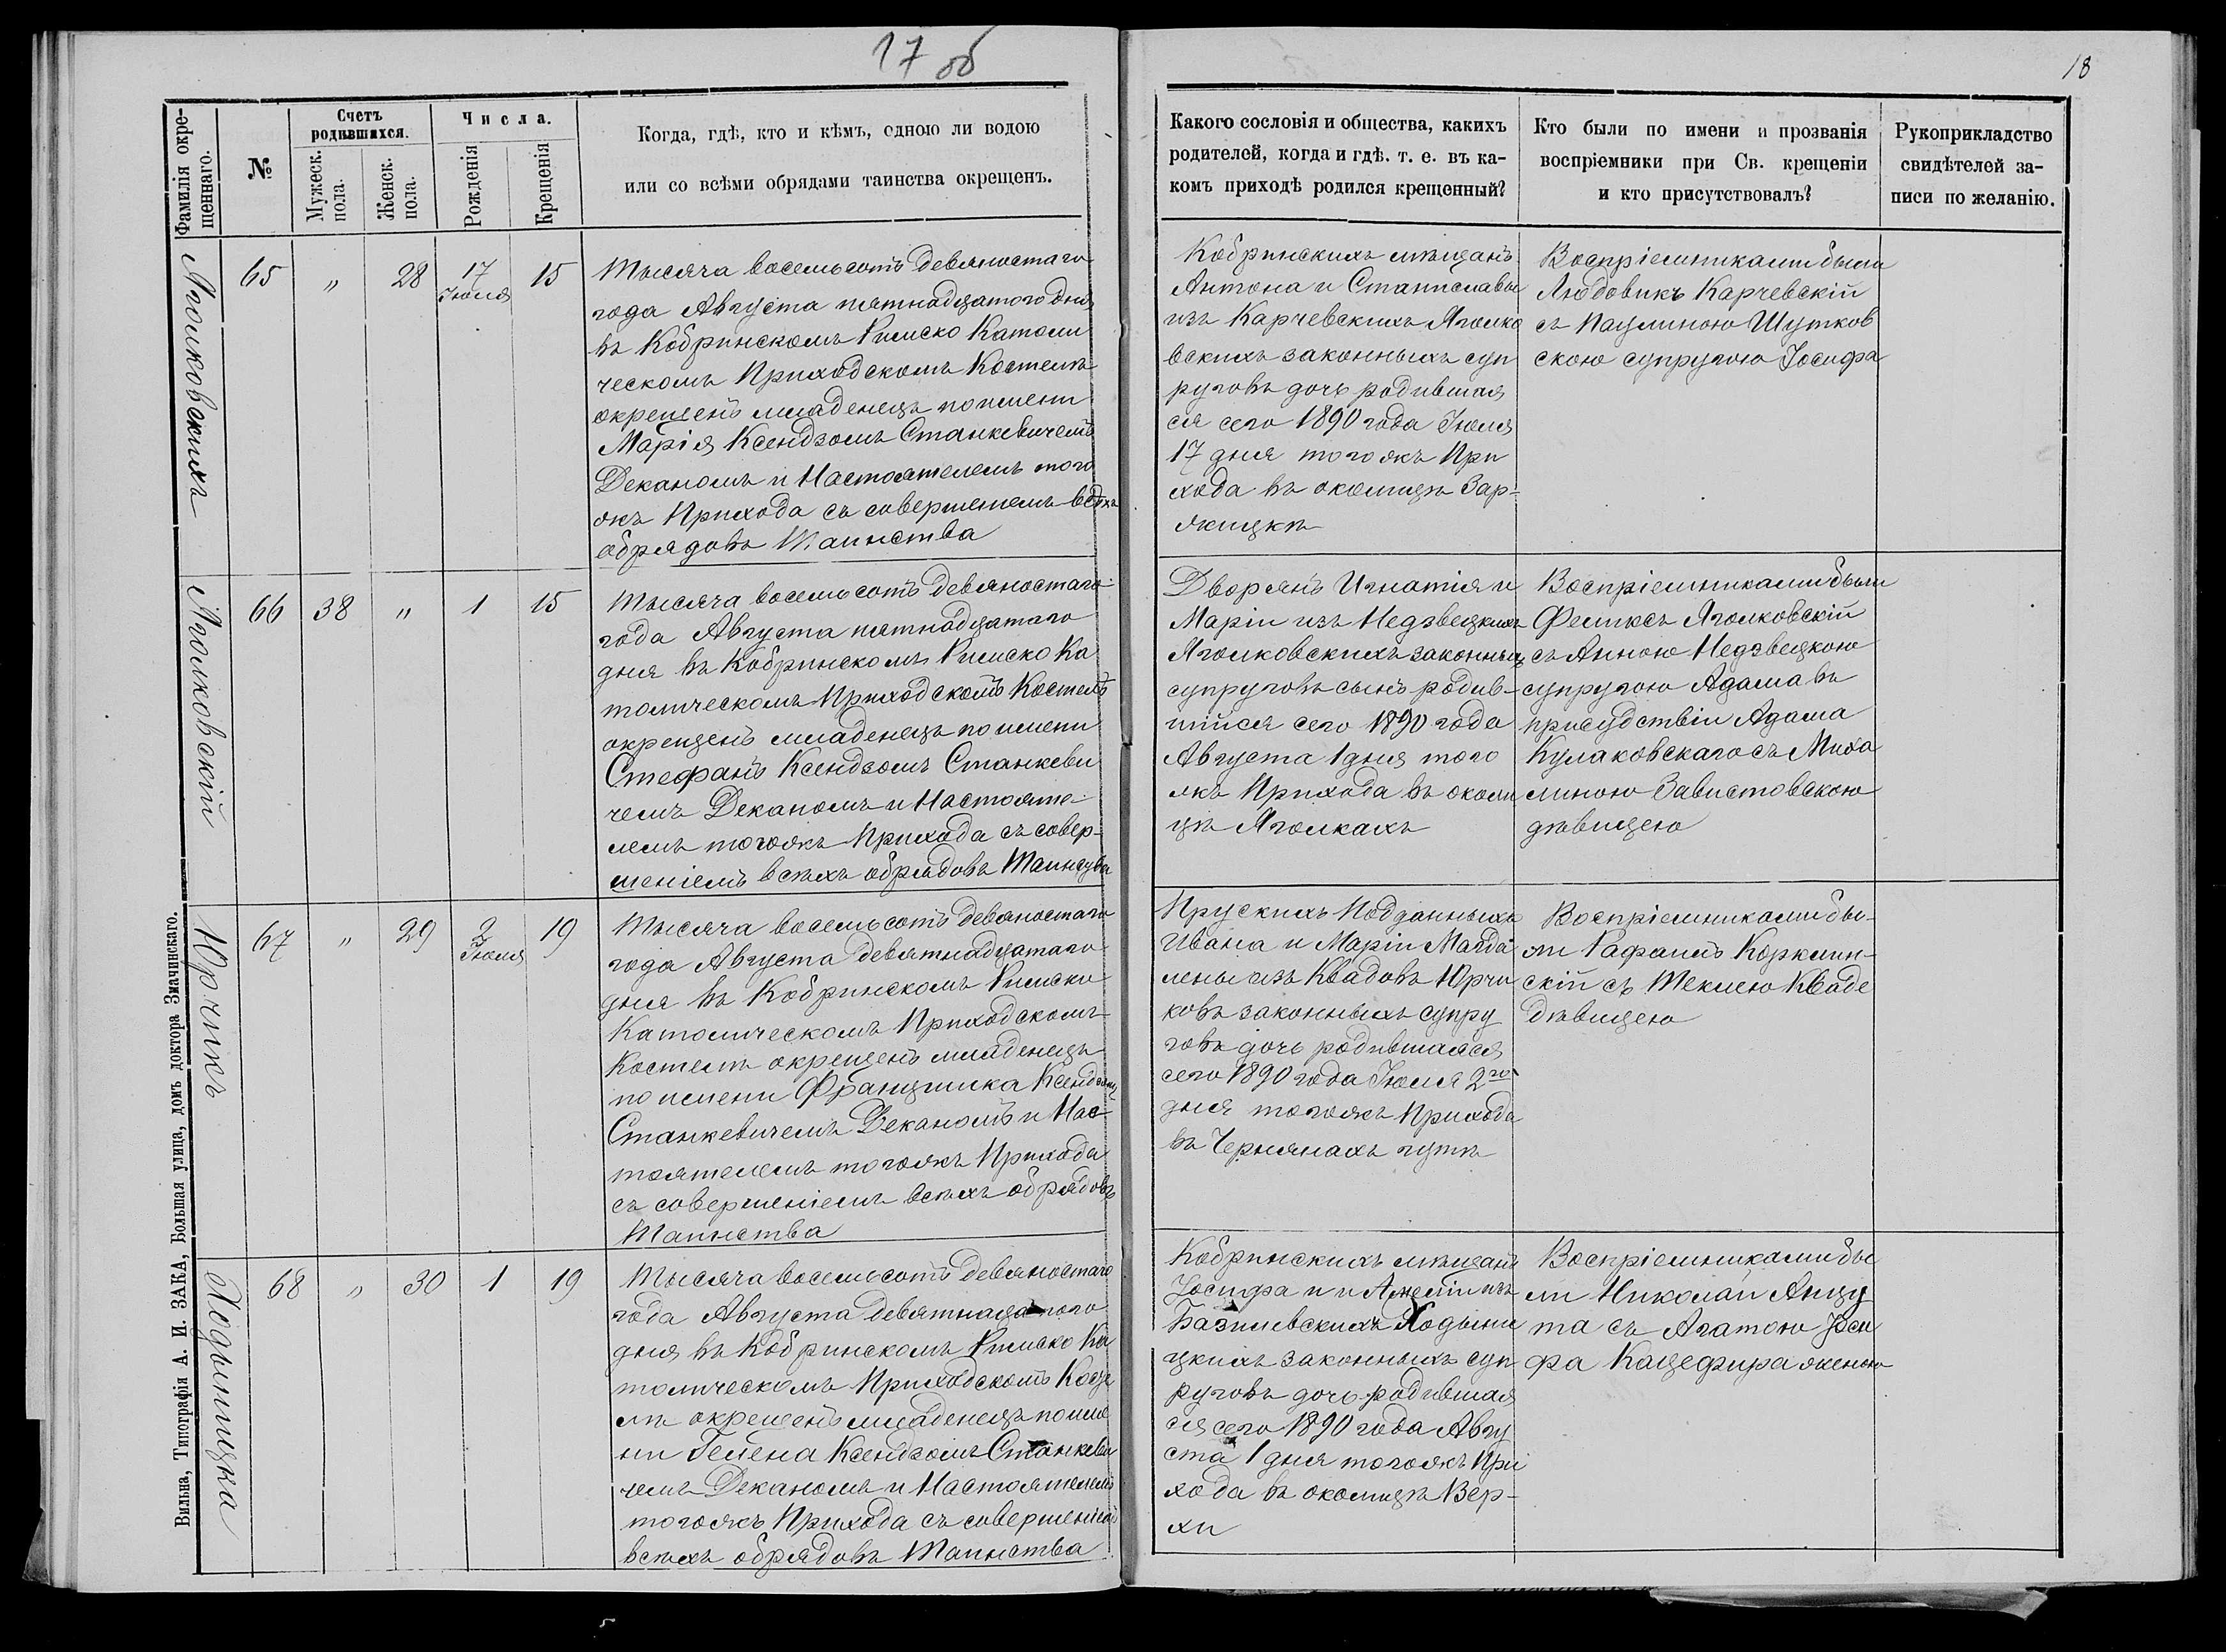 17 об
18
Фамилія окре-
щеннаго.
№
Счетъ
родившихся.
Мужеск.
пола.
Женск.
пола.
Числа.
Рожденія
Крещенія
Когда, гдѣ, кто и кѣмъ, одною ли водою
или со всѣми обрядами таинства окрещенъ.
Какого сословія и общества, какихъ
родителей, когда и гдѣ. т. е. въ ка-
комъ приходѣ родился крещенный?
Кто были по имени и прозванія
воспріемники при Св. крещеніи
и кто присутствовалъ?
Рукоприкладство
свидѣтелей за-
писи по желанію.
Яголковскихъ
65 " 28 17 Іюля 15
Тысяча восемьсотъ девяностаго
года Августа пятнадцатого дня
въ Кобринскомъ Римско Католи
ческомъ Приходскомъ Костелѣ
окрещенъ младенецъ по имени
Марія Ксендзомъ Станкевичемъ
Деканомъ и Настоятелемъ того
жъ Прихода съ совершетемъ всѣхъ
обрядовъ Таинства
Кобринскихъ мѣщанъ
Антона и Станиславы
изъ Карчевскихъ Яголко
вскихъ законныхъ суп
руговъ дочь родившая
ся сего 1890 года Іюля
17 дня тогожъ При
хода въ околицѣ Зар-
жицкѣ
Воспріемниками были
Людовикъ Карчевскій
съ Паулиною Шутков
скою супругою Іосифа
Яголковскій
66 38 " 1 15
Тысяча восемьсотъ девяностаго
года Августа пятнадцатаго
дня въ Кобринскомъ Римско Ка
толическомъ Приходскомъ Костелѣ
окрещенъ младенецъ по имени
Стефанъ Ксендзомъ Станкеви
чемъ Деканомъ и Настояте-
лемъ тогожъ Прихода съ совер-
шеніемъ всѣхъ обрядовъ Таинства
Дворянъ Игнатія и
Маріи изъ Недзвецкихъ
Яголковскихъ законныхъ
супруговъ сынъ родив-
шійся сего 1890 года
Августа 1 дня того
жъ Прихода въ околи
цѣ Яголкахъ
Воспріемниками были
Феликсъ Яголковскій
съ Анною Недзвецкою
супругою Адама въ
присудствіи Адама
Кулаковскаго съ Миха
линою Завистовскою
дѣвицею
Юрчикъ
67 " 29 2 Іюля 19
Тысяча восемьсотъ девяностаго
года Августа девятнадцатаго
дня въ Кобринскомъ Римско
Католическомъ Приходскомъ
Костелѣ окрещенъ младенецъ
по имени Францишка Ксендзомъ
Станкевичемъ Деканомъ и Нас
тоятелемъ тогожъ Прихода
съ совершеніемъ всѣхъ обрядовъ
Таинства
Прускихъ Подданныхъ
Ивана и Маріи Магда
лены изъ Квадовъ Юрчи
ковъ законныхъ супру
говъ дочь родившаяся
сего 1890 года Іюля 2го
дня тогожъ Прихода
въ Чернянахъ гутѣ
Воспріемниками бы-
ли Рафаилъ Корклин-
скій съ Теклею Кваде
дѣвицею
Ходыницка
68 " 30 1 19
Тысяча восемьсотъ девяностаго
года Августа девятнадцатого
дня въ Кобринскомъ Римско Ка
толическомъ Приходскомъ Косте
лѣ окрещенъ младенецъ по име
ни Гелена Ксендзомъ Станкеви
чемъ Деканомъ и Настоятелемъ
тогожъ Прихода съ совершеніемъ
всѣхъ обрядовъ Таинства
Кобринскихъ мѣщанъ
Іосифа и и Анеліи изъ
Базилевскихъ Ходыни
цкихъ законныхъ суп
руговъ дочь родившая
ся сего 1890 года Авгу
ста 1 дня тогожъ При
хода въ околицѣ Вер-
хи
Воспріемниками бы
ли Николай Анцу
та съ Агатою Іоси
фа Кацефира женою
Вильна, Типографія А. И. ЗАКА, Большая улица, домъ доктора Значинскаго.